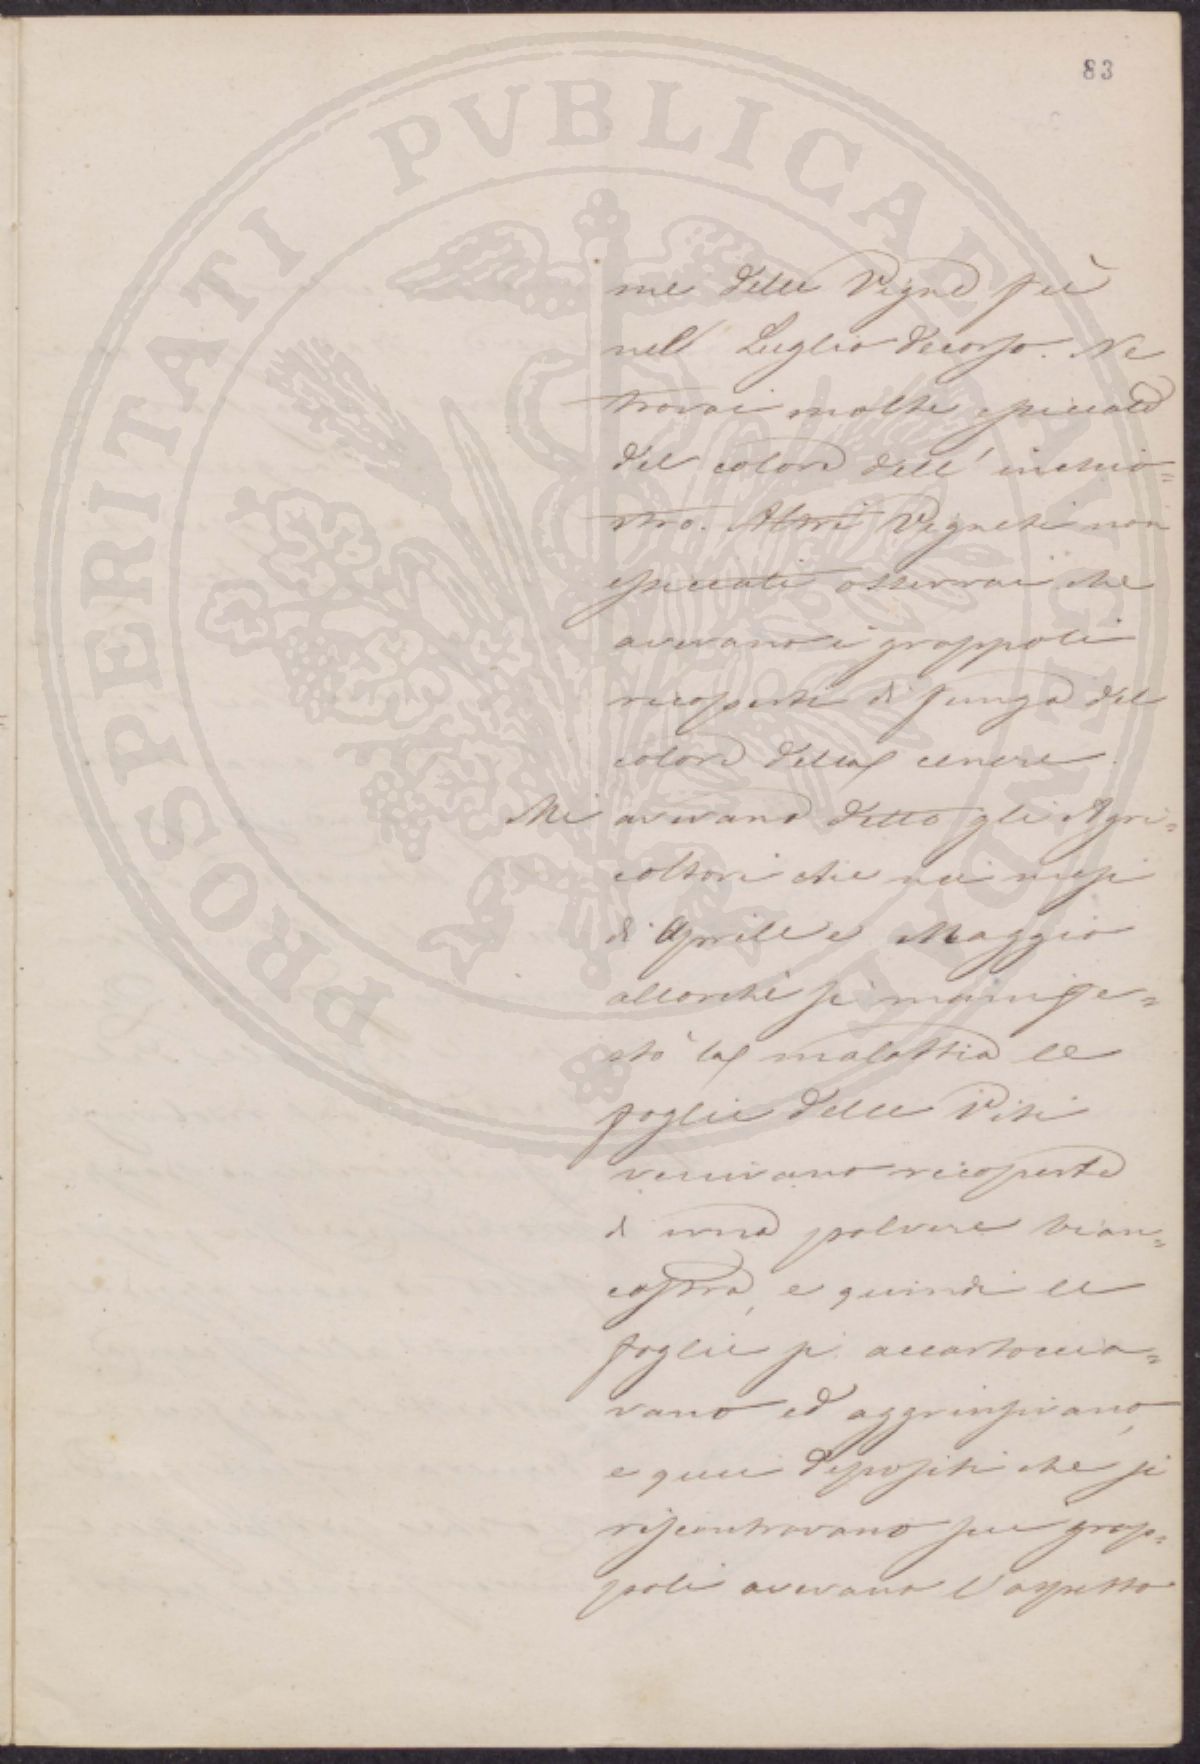 83
PROSPERITATI PVBLICAE AVGENDAE
me delle Vigne fu
nell Luglio decorso. Ne
trovai molte spiccate
del colore dell' inchio=
stro. Altri Vigneti non
spiccati osservai che
avevano i grappoli
ricoperti di funga del
colore della cenere.
Mi avevano detto gli Agri=
coltori che nei mesi
di Aprile e Maggio
allorchè si manife=
stò la malattia le
foglie delle Viti
venivano ricoperte
di una polvere bian=
castra, e quindi le
foglie si accartoccia=
vano ed aggrinsivano,
e quei depositi che si
riscontravano sui grap=
poli avevano l'aspetto